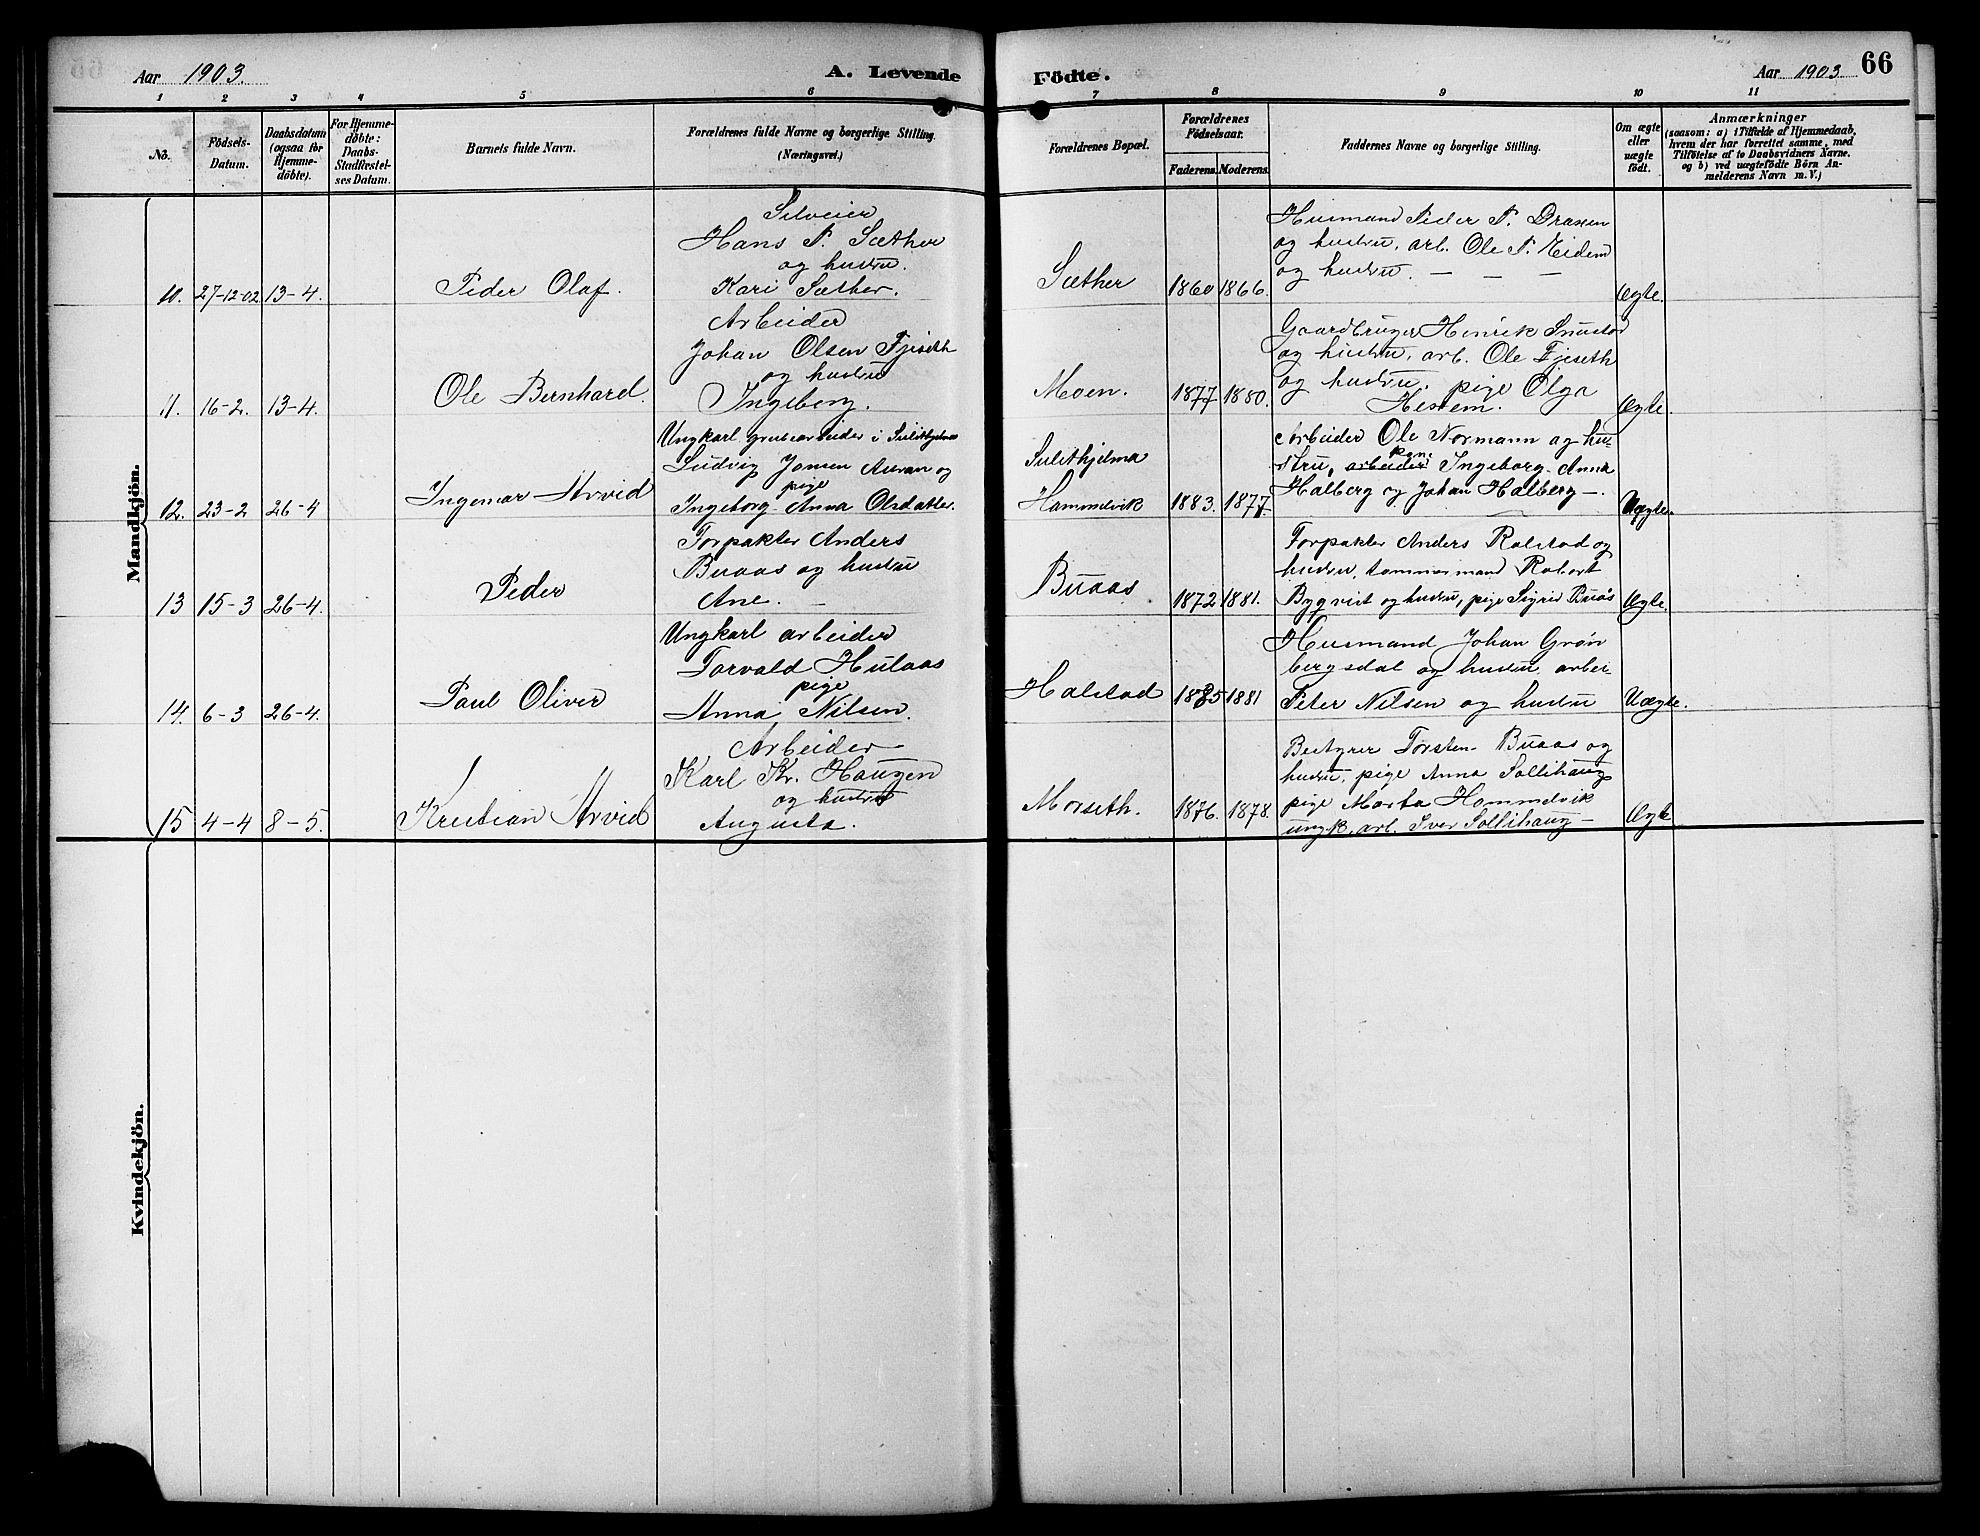 Aar 1903. A. Levende Födte. Aar 1903. 66
1 2 3 4 5 6 7 8 9 10 11
No.
Födsels-
Datum.
Daabsdatum
(ogsaa for
Hjemme-
döbte).
For Hjemme-
döbte:
Daabs-
Stadfæstel-
ses Datum.
Barnets fulde Navn.
Forældrenes fulde Navne og borgerlige Stilling.
(Næringsvei.)
Forældrenes Bopæl.
Forældrenes
Födselsaar.
Faderens. Moderens.
Faddernes Navne og borgerlige Stilling.
Om ægte
eller
uægte
födt.
Anmærkninger
(saasom: a) i Tilfælde af Hjemmedaab,
hvem der har forrettet samme, med
Tilföielse af to Daabsvidners Navne,
og b) ved uægtefödte Börn An-
melderens Navn m. V.)
Mandkjön.
10. 27-12-02 13-4. Peder Olaf.
Selveier
Hans P. Sæther
og hustru.
Kari Sæther.
Sæther 1860 1866.
Husmand Peder P. Draxen
og hustru, arb. Ole P. Eidem
og hustru. — — —
Ægte.
11. 16-2. 13-4. Ole Bernhard.
Arbeider
Johan Olsen Fjeseth
og hustru
Ingeborg.
Moen. 1877 1880.
Gaardbruger Henrik
og hustru, arb. Ole Fjeseth
og hustru, pige Olga
Hestem.
Ægte.
12. 23-2 26-4 Ingemar Arvid
Ungkarl grubearbeider i Sulithjelma
Ludvig Jonsen Auran og
pige
Ingeborg Anna Olsdatter.
Sulithjelma
Hammervik 1883. 1877.
Arbeider Ole Normann og hu-
stru, arbeider kone Ingeborg Anna
Halberg og Johan Halberg —.
Uægte.
13 15-3 26-4. Peder
Forpakter Anders
Buaas og hustru
Ane. —
Buaas 1872 1881.
Forpakter Anders Rolstad og
hustru, tømmermand Robert
Bygqvist og hustru, pige Sigrid Buås
Ægte.
14. 6-3 26-4. Paul Oliver
Ungkarl arbeider
Torvald Hulaas
pige
Anna Nilsen.
Halstad 1885 1881
Husmand Johan Grøn
bergsdal og hustru, arber-
Peter Nilsen og hustru
Uægte.
15 4-4 8-5. Kristian Arvid
Arbeider
Karl Kr. Haugen
og hustru
Augusta.
Morseth. 1876. 1878.
Bestyrer Torsten Buaas og
hustru, pige Anna Sollihaug
pige Marta Hammervik
ungk. arb. Iver Sollihaug —
Ægte
Kvindekjön.